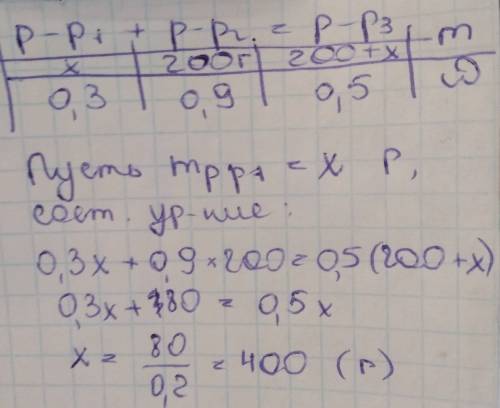 р-р₁ + р-р₂ = р-р₃
x 200г 200+x m
0,3 0,9 0,5 ω
Пусть mр-р₁ = x г,
сост. ур-ние:
0,3x + 0,9 × 200 = 0,5 (200+x)
0,3x + 180 = 0,5x
x = 80/0,2 = 400 (г)